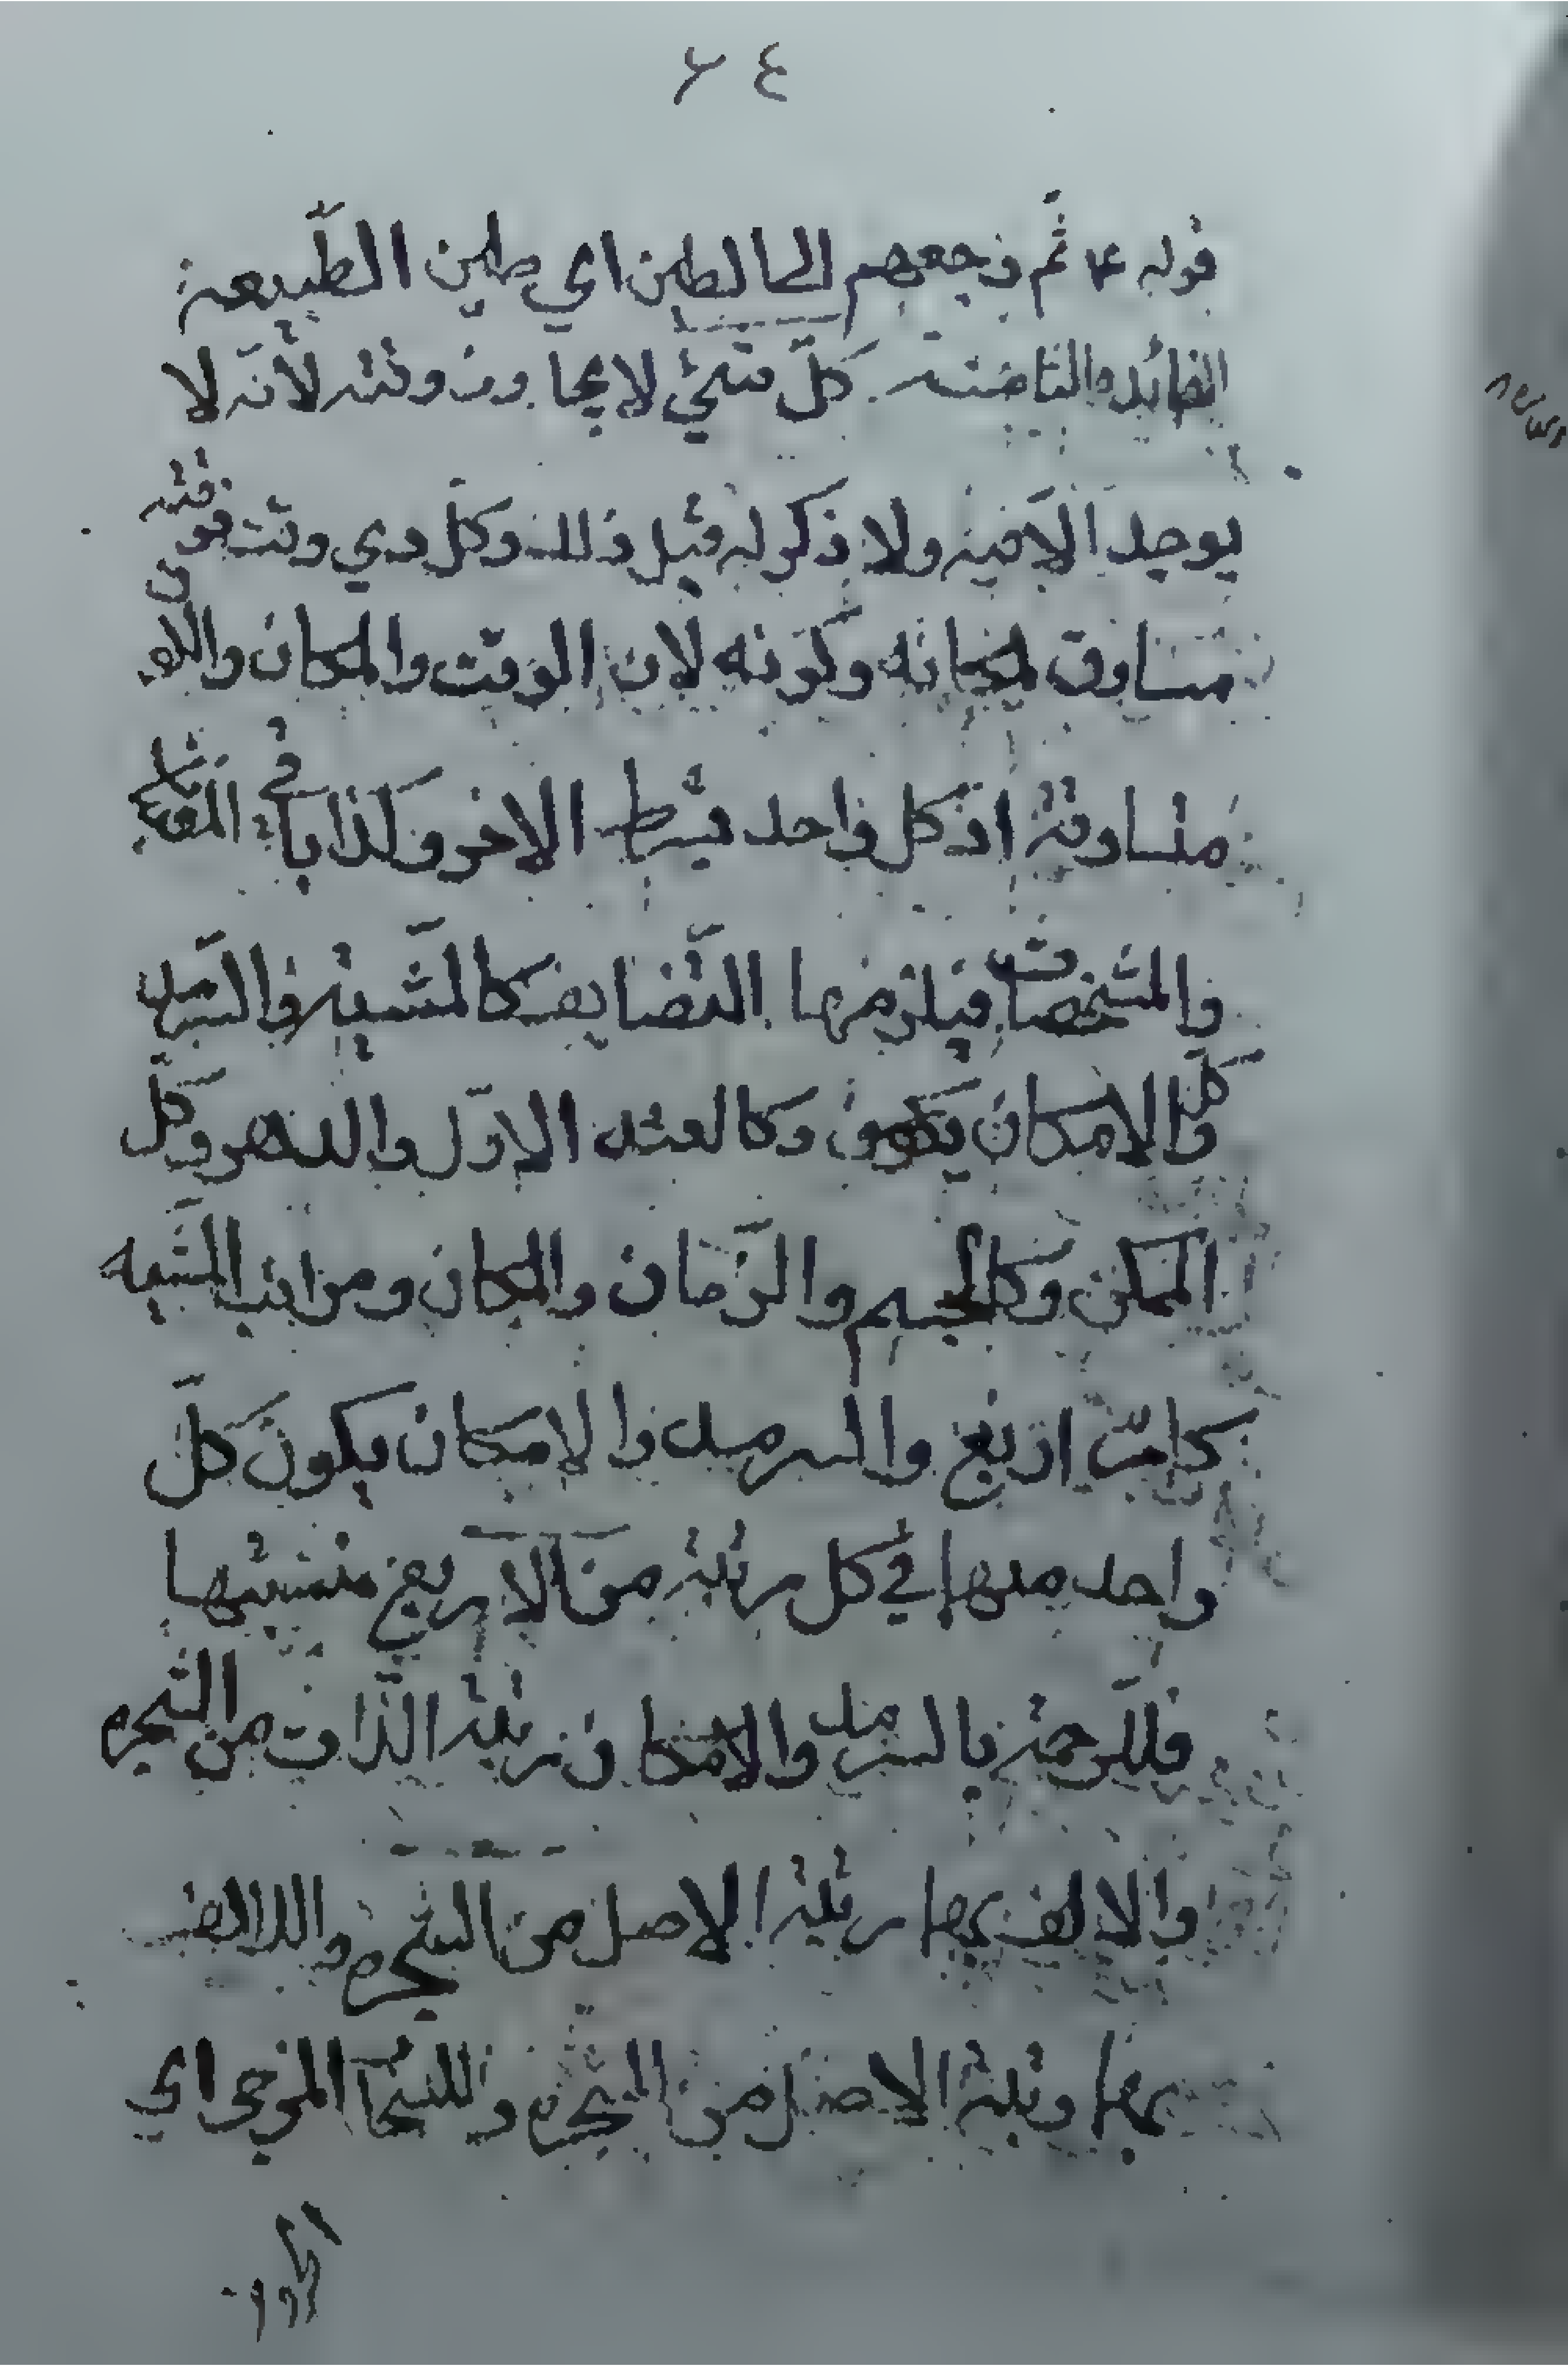 ٦٤
قوله ع ثم رجعهم الى الطين اي طين الطبيعة
الفائدة الثامنة كل شيئ لا يجاوز وقته لانه لا
يوجد الا فيه ولا ذكر له قبل ذلك وكل ذي وقت فوقته
مساوق لمكانه وكونه لان الوقت والمكان
متساوقة اذ كل واحد شرط الاخر وكذا باقي
والمشخصات فيلزمها التضايف كالمشية والسرمد
والامكان وكالعقل الاول والدهر وكل
الممكن وكالجسم والزمان والمكان ومراتب المشيه
كما مر اربع والسرمد والامكان يكون كل
واحد منها في كل مرتبة من الاربع بنسبتها
فللرحمة بالسرمد والامكان رتبة الذات من الشجرة
والالف بهما رتبة الاصل من الشجرة
بهما رتبة الاصل من الشجرة وللسحاب المزجى اي